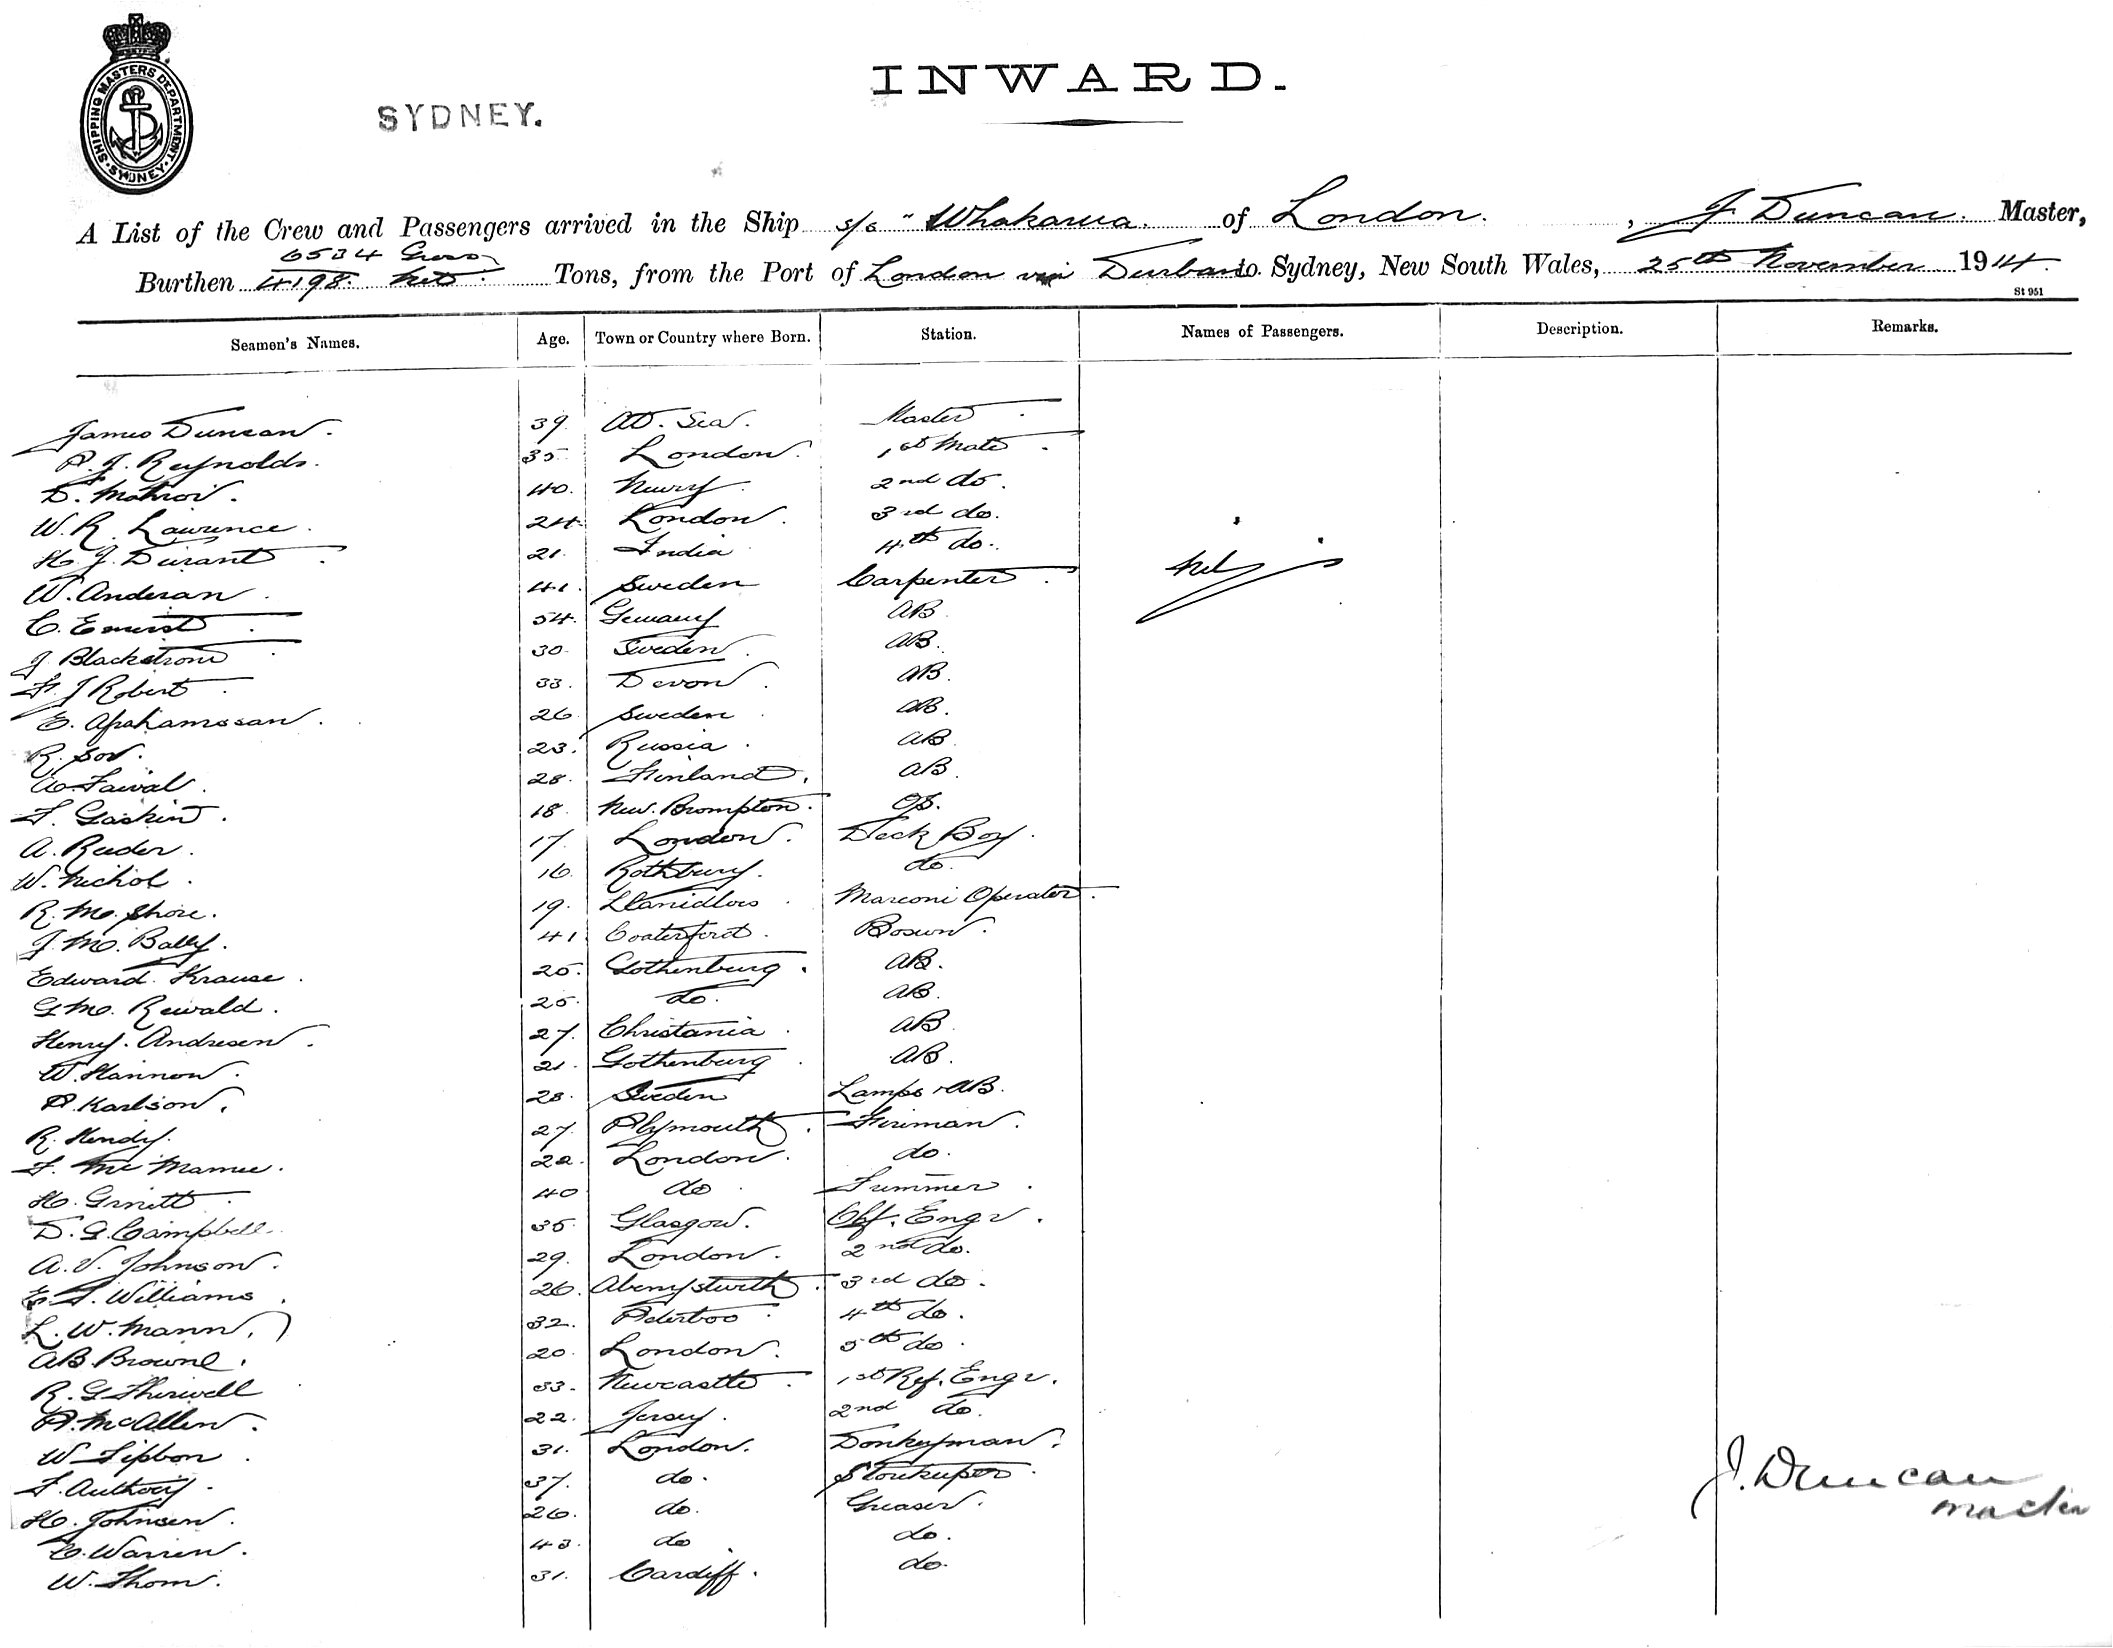 SHIPPING MASTERS DEPARTMENT · SYDNEY ·
SYDNEY.
INWARD.
A List of the Crew and Passengers arrived in the Ship s/s "Whakarua. of London. , J Duncan. Master,
6534 Gross
Burthen 4198. net. Tons, from the Port of London via Durban to Sydney, New South Wales, 25th November 1914.
St 951
Seamen's Names. Age. Town or Country where Born. Station. Names of Passengers. Description. Remarks.
James Duncan. 39. At. Sea. Master
P. J. Reynolds. 35 London. 1st Mate
D. 40. Newry. 2nd do.
W. R. Lawrence. 24. London. 3rd do.
H. J. Durant 21. India 4th do.
Nil
W. Anderan. 41. Sweden Carpenter
C. Ernerst 54. Germany AB
J Blackstrom 30. Sweden. AB.
F. J Robert 33. Devon. AB.
E. Apahamssan. 26. Sweden AB.
R. 23. Russia. AB
28. Finland. AB.
F. Gaskin. 18. New. Brompton. OS.
A. Reeder. 17. London. Deck Boy.
W. Nichol. 16. Rothbury. do.
R. M. Shore. 19. Llanidlois. Marconi Operator.
J. M. Bally. 41 Bosun.
Edward. Krause. 25. Gothenburg. AB.
G M. Rewald. 25. do. AB.
Henry. Andresen. 27. Christania. AB
W. Hannon. 21. Gothenburg. AB.
P. Karlson. 28. Sweden Lamps & AB.
R. Hendy. 27. Plymouth. Fireman.
F. Mc Mamee. 22. London. do.
H. 40 do Trimmer.
D. G. Campbell. 35. Glasgow. Chf. Engr.
A. V. Johnson. 29. London. 2nd do.
E. T. Williams. 26. Aberystwith. 3rd do.
L. W. Mann. 32. 4th do.
AB. Browne. 20. London. 5th do.
R. G Thirwell 33. Newcastle. 1st Ref. Engr.
P. McAllen. 22. Jersey. 2nd do.
W Tipbon. 31. London. Donkeyman.
F. Anthony. 37. do. Storekeeper.
H. Johnsen. 26. do. Greaser.
C. Warren. 43. do do.
W. Thom. 31. Cardiff. do.
J. Duncan
Master